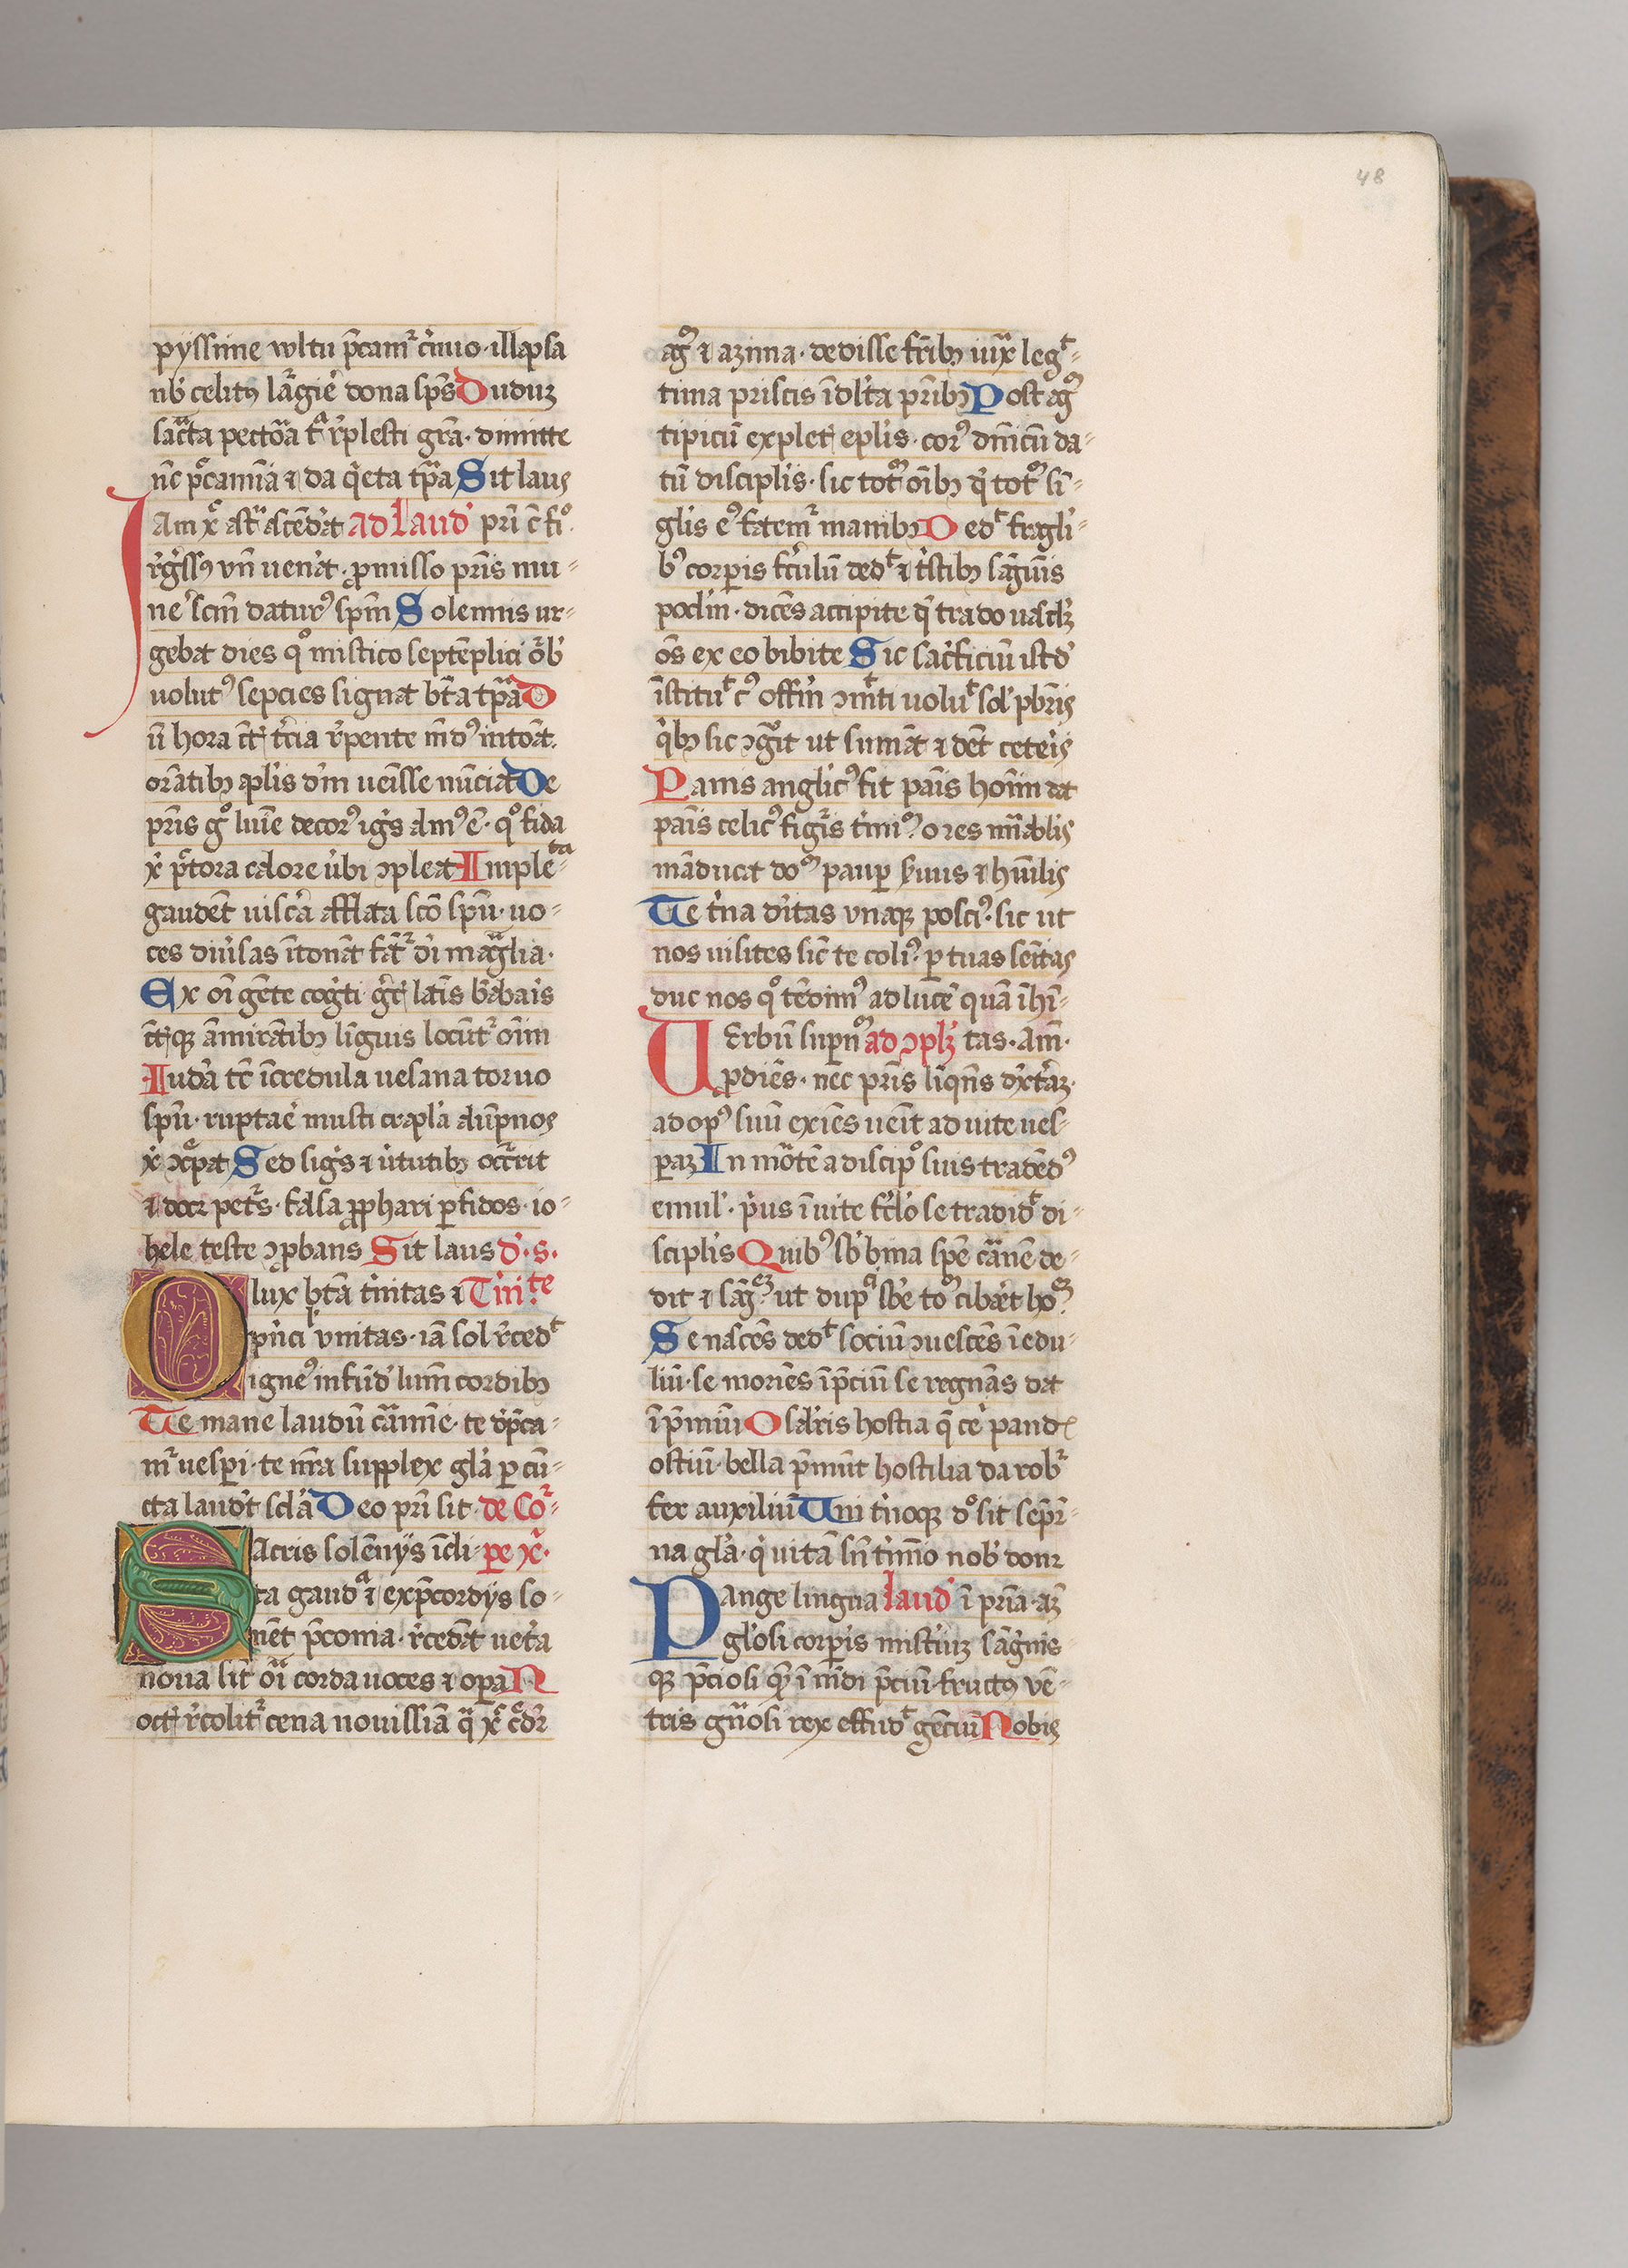 48
pyssime wltu p̄cam̃ c̃nuo · illapsa
nb̾ celitꝰ lãgie̾ dona sp̃s Duduʒ
sac̃ta pectoã t̾ r̾plesti gr̃a · dimitte
nc̄ pc̾camia̾ ⁊ da q̾eta tp̃a Sit laus
Iam xͨ ast̾ ascēd̾at ad Laud̾ pri c̄ fiͦ
r̾gr̾ssꝰ vn̄ uen̾at · ꝓmisso pr̃is mu-
ne̾ scm̄ daturꝰ spm̄ Solemnis ur-
gebat dies qͦ mistico septēplici or̾b̾
uolutꝰ sepcies signat bt̄a tp̃a D
ū hora ct̄ t̾cia r̾pente mūdꝰ intoāt.
orātibꝫ aplis d̾m ueīsse nūciat De
pr̃is gͦ luīe decorꝰ igs̾ almꝰ ē · qͦ fida
x̾ pc̾tora calore u̾bi ꝯpleat Imple
ta
gaudēt uisc̾a afflata sco̅ spū · uo-
ces diu̾sas ītonāt fāt̾ d̾i maḡlia ·
Ex oī gēte cogt̾i gc̾ latis̄ b̾abais
ct̄ꝗʒ āmirātibꝫ līguis locūt̾ oīm
Iud̾a tc̄ īcredula uesana toruo
spū · ruptae̾ musti crapl̾a alūpnos
x̾ ꝯc̾pat Sed sigs̾ ⁊ u̾tutibꝫ occr̾rit
⁊ docꝫ petr̾s · falsa ꝓphari ꝑfidos · io-
hele teste ꝯprobans Sit laus d̾ · s ·
O lux bt̄a t̾nitas ⁊ Tr̾i te
pn̾ci vnitas · iā sol r̾cedͭ
igneꝰ infūd̾ lum̄ cordibꝫ
Te mane laudū cãmīe · te dp̾ca-
m̃ uesp̱i · te nr̃a supplex gl̾a ꝑ cū-
cta laud̾t scl̾a Deo pri sit · de Cor̾-
Sacris solēnijs īcl̾i · ꝑe xͨ̾ ·
ta gaudͣ ⁊ ex p̄cordijs so-
nēt p̄conia · r̾cedāt uet̾a
noua sīt oīa corda uoces ⁊ oꝑa N
oct̾ r̾colit̾ cena nouissīa q̄ xͨ̾ cͨ̾dr̾
agꝰ ⁊ azima · dedisse fr̃ibꝫ iuxͣ legͭ-
tima priscis īdlt̾a pr̃ibꝫ Post agꝰ
tipicū explet̾ eplis̾ · corꝰ dn̄icū da-
tū discipl̾is · sic totꝰ oībꝫ q̾ totꝰ sī-
gl̾is eꝰ fatem̃ manibꝫ Dedͭ fragli̾-
bꝰ corꝑis fc̾ulū dedͭ ⁊ t̾stibꝫ sāguis̄
pocl̾m · dices̄ accipite q̾ trado uasclꝫ̾
os̄ ex eo bibite Sic sac̾ficiū istd̾
īstituͭ cꝰ offīm ꝯm̄ti uoluͭ sol̾ pbr̃is
q̾bꝫ sic ꝯgr̾it ut sumāt ⁊ dēt cete̾is
Panis anglic̾ꝰ fit pais̄ hoīm dat
pais̄ celicꝰ figr̾is t̾minꝰ O res mir̃ablis̾
māducat doꝰ paup̱ s̾uus ⁊ hūilis
Te t̾na d̾itas vnaꝗʒ posciꝰ · sic ut
nos uisites sic̄ te coliꝰ ꝑ tuas seītas
duc nos qͦ tēdimꝰ ad lucē quā īhī-
Uerbū sup̱nꝰ ad ꝯplꝫ tas · Am̄ ·
ꝓdies̄ · nec pr̃is līqns̄ dxt̾aʒ ·
ad opꝰ suū exiēs ueīt ad uite ues-
ꝑaʒ In mor̾tē a discipͦ suis tradēdꝰ
emul̾ · p̾us ī uite fcl̾o se tradidͭ di-
scipl̾is Quibꝰ sb̾ bina spē cãnē de-
dit ⁊ sāgꝰ ut dupͣ sb̾e toꝰ cibar̾et hoꝰ
Se nasces̄ dedͭ sociū ꝯuesces̄ ī edu-
liū · se mories̄ ī p̄ciū se regnās dat
ī p̄miū O sal̾ris hostia q̄ ce̾ pandᵉ
ostiū · bella p̄mūt hostilia da rob̾
fer auxiliū Uni t̾noꝗʒ dͦ sit sep̄r̾-
na gl̾a · q̾ uitā sn̄ t̾mīo nob̾ donꝫ
Pange lingua laud̾ ī pr̃ia · aʒ
gl̾osi corꝑis mist̾iuʒ sāgn̾is
ꝗʒ p̄ciosi qͫ ī mūdi p̄ciū · fructꝰ vē-
tris gn̾osi rex effudͭ gēciū Nobis